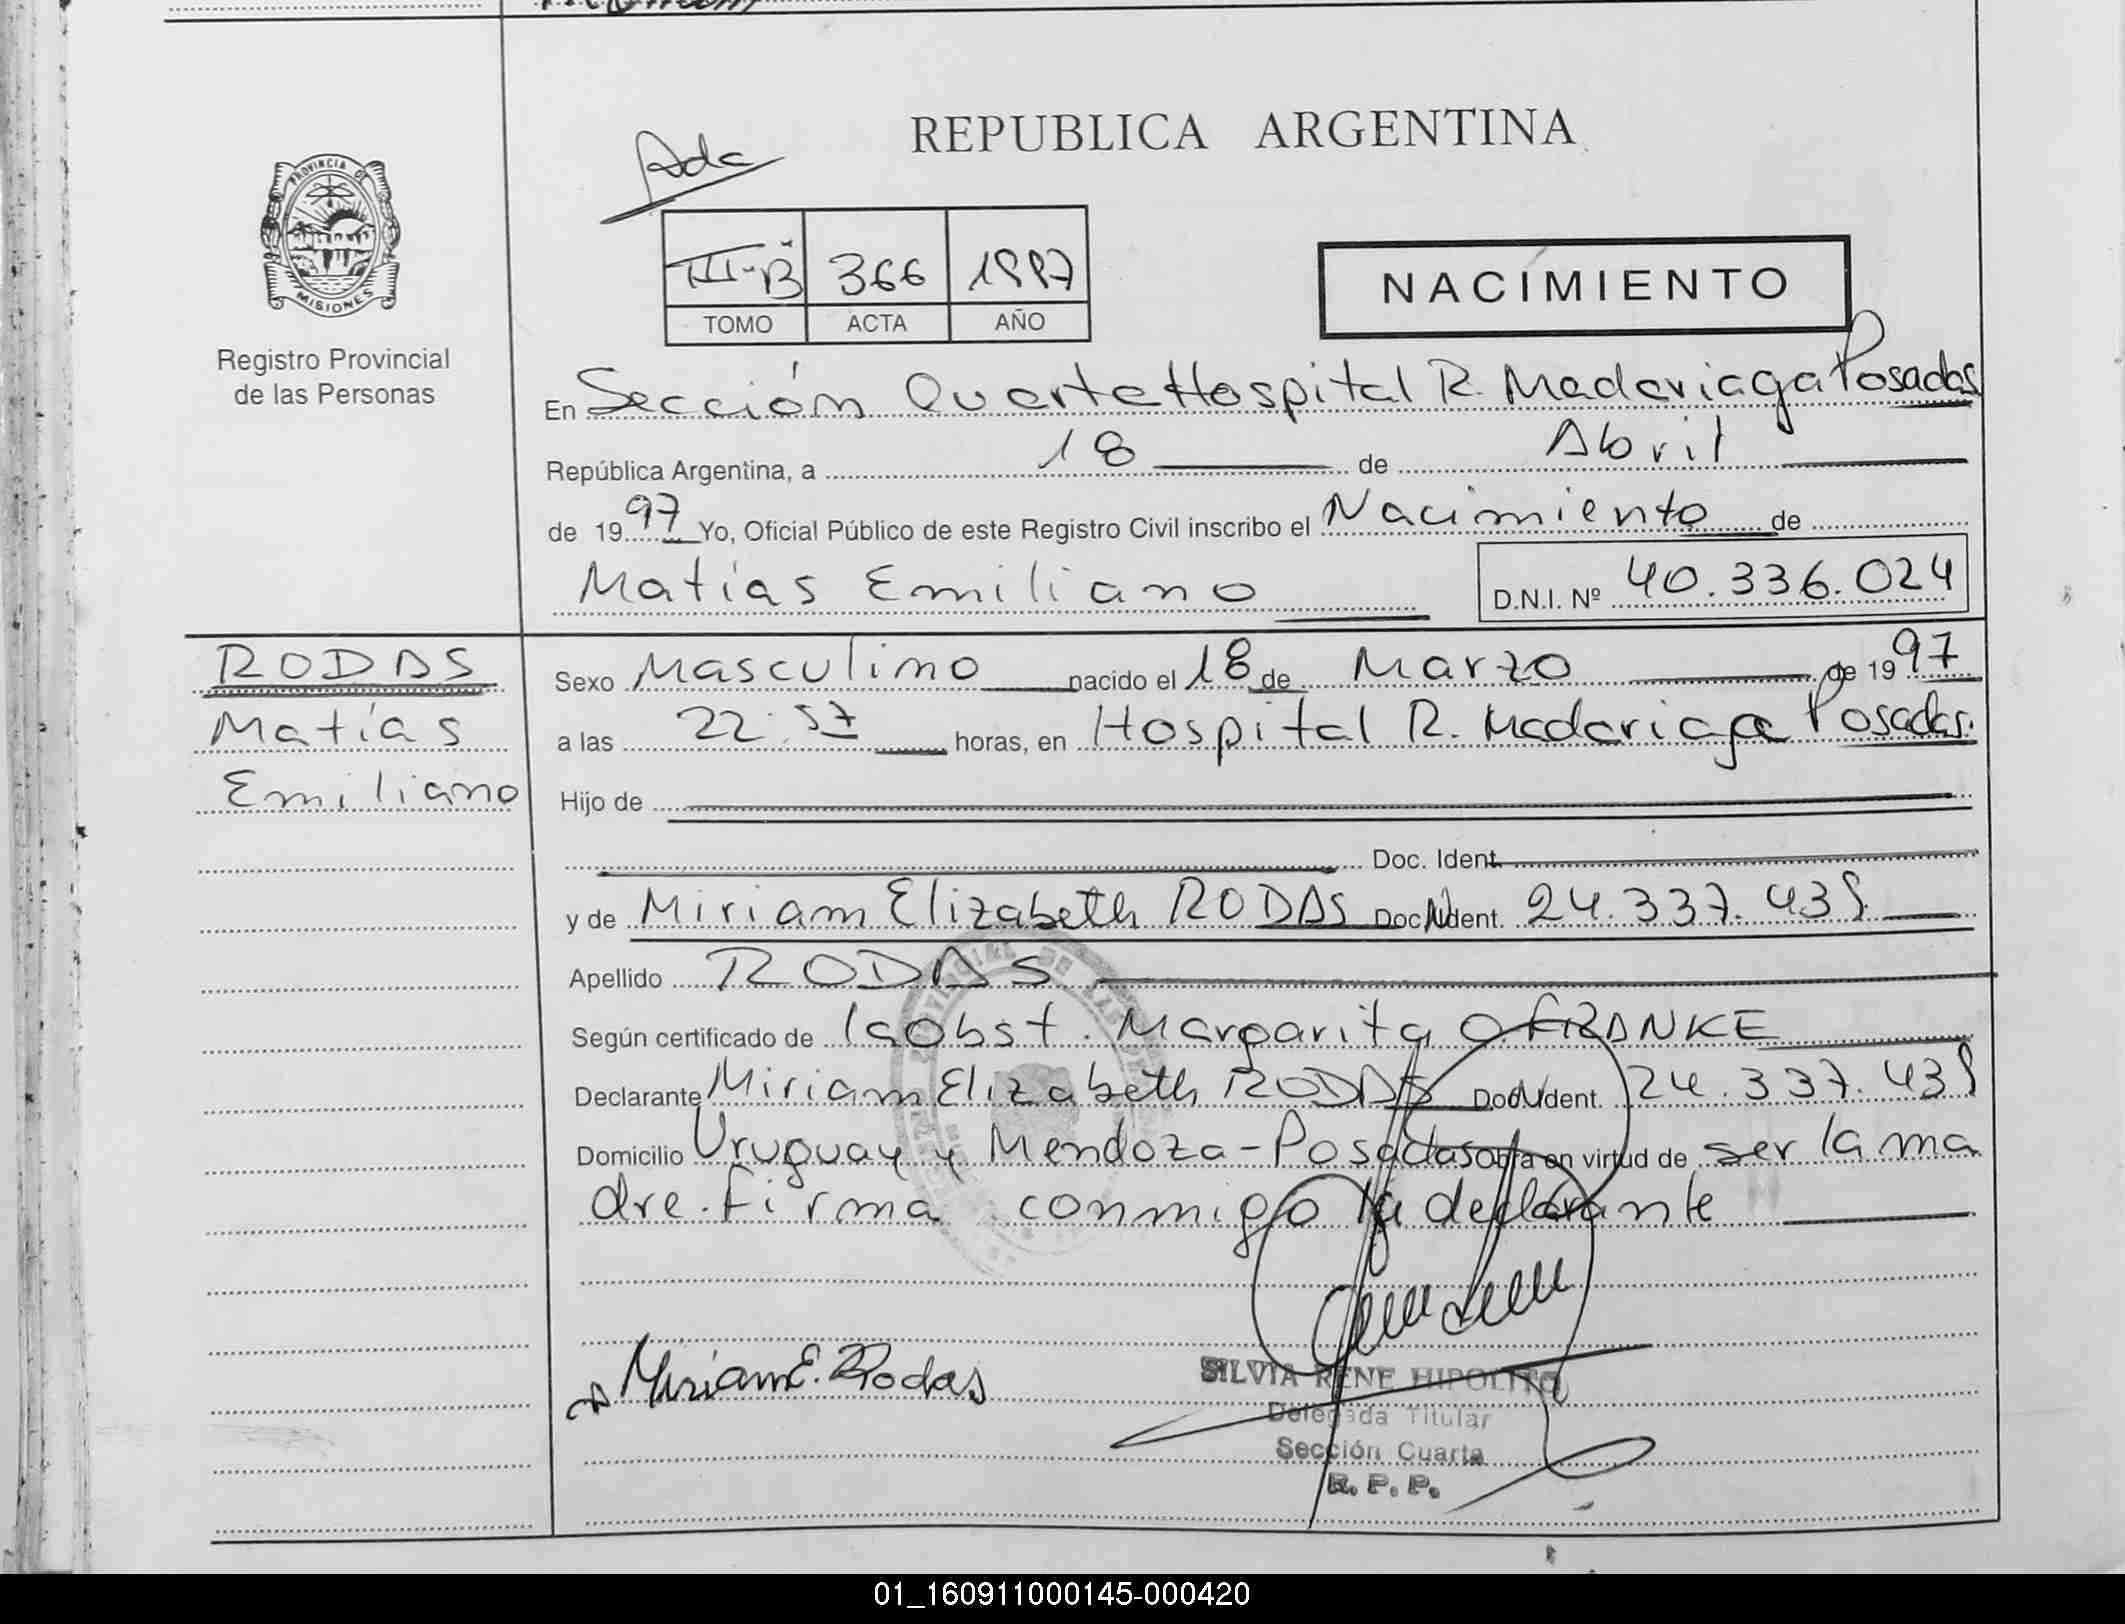 REPUBLICA ARGENTINA
PROVINCIA DE
MISIONES
Registro Provincial
de las Personas
III-B 366 1997
TOMO ACTA AÑO
NACIMIENTO
En Sección Cuarta Hospital R. Madariaga Posadas
República Argentina, a 18 de Abril
de 1997 Yo, Oficial Público de este Registro Civil inscribo el Nacimiento de
Matías Emiliano D.N.I. Nº 40.336.024
RODAS
Matías
Emiliano
Sexo Masculino nacido el 18 de Marzo de 1997
a las 22:57 horas, en Hospital R. Madariaga Posadas.
Hijo de
Doc. Ident.
y de Miriam Elizabeth RODAS Doc. Ident. 24.337.439
Apellido RODAS
Según certificado de la Obst. Margarita O FRANKE
Declarante Miriam Elizabeth RODAS Doc. Ident. 24.337.439
Domicilio Uruguay y Mendoza-Posadas obra en virtud de ser la ma
dre. Firma conmigo la declarante
Miriam E. Rodas
SILVIA RENE HIPOLITO
Delegada Titular
Sección Cuarta
R. P. P.
01_160911000145-000420